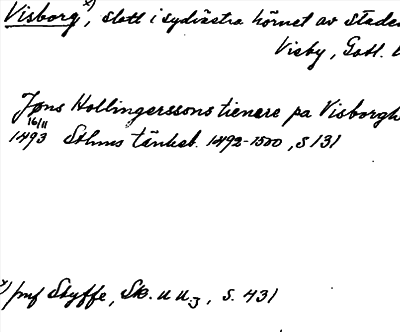 Visborg x), slott i sydvästra hörnet av staden
Visby, Gotl. l
Jøns Hollingerssons tienere pa Visborgh
16/11
1493 Sthms tänkeb. 1492-1500, s 131
x) jmf Styffe, Sk. u u. 3, s. 431